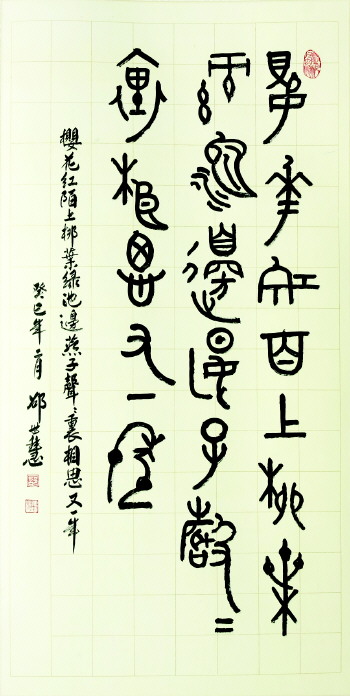 櫻花紅陌上柳葉
綠池邊燕子聲〻
裏相思又一年
櫻花紅陌上柳葉綠池邊燕子聲〻裏相思又一年
癸巳年二月 邵世慧